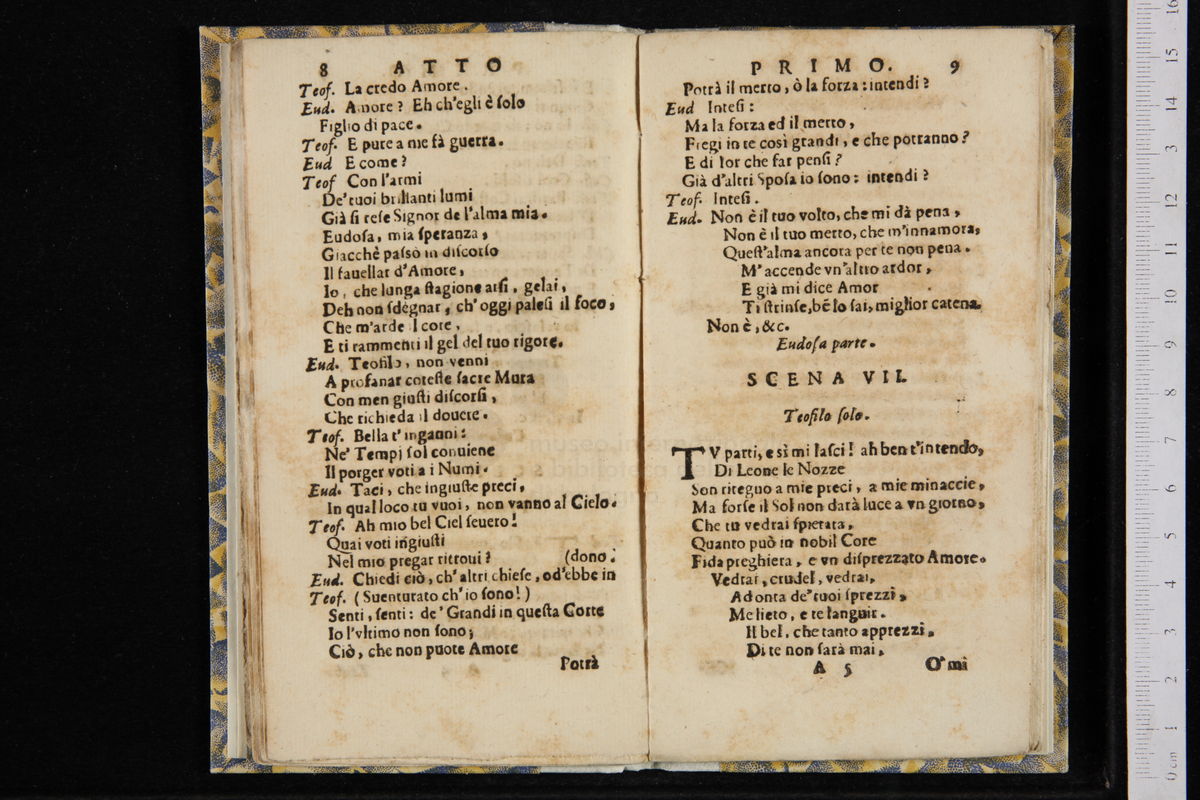 8 ATTO
Teof. La credo Amore.
Eud. Amore? Eh ch'egli è ſolo
Figlio di pace.
Teof. E pure a me fà guerra.
Eud E come?
Teof Con l'armi
De' tuoi brillanti lumi
Già ſi reſe Signor de l'alma mia.
Eudoſa, mia ſperanza,
Giacchè paſsò in diſcorſo
Il fauellar d'Amore,
Io, che lunga ſtagione arſi, gelai,
Deh non ſdegnar, ch' oggi paleſi il foco,
Che m'arde il core,
E ti rammenti il gel del tuo rigore.
Eud. Teofilo, non venni
A profanar coteſte ſacre Mura
Con men giuſti diſcorſi,
Che richieda il douere.
Teof. Bella t' inganni:
Ne' Tempj ſol conuiene
Il porger voti a i Numi.
Eud. Taci, che ingiuſte preci,
In qual loco tu vuoi, non vanno al Cielo.
Teof. Ah mio bel Ciel ſeuero!
Quai voti ingiuſti
Nel mio pregar ritroui? (dono.
Eud. Chiedi ciò, ch' altri chieſe, od'ebbe in
Teof. (Suenturato ch' io ſono!)
Senti, ſenti: de' Grandi in queſta Corte
Io l'vltimo non ſono;
Ciò, che non puote Amore
Potrà
PRIMO. 9
Potrà il merto, ò la forza: intendi?
Eud Inteſi:
Ma la forza ed il merto,
Fregi in te così grandi, e che potranno?
E di lor che far penſi?
Già d'altri Spoſa io ſono: intendi?
Teof. Inteſi.
Eud. Non è il tuo volto, che mi dà pena,
Non è il tuo merto, che m'innamora,
Queſt'alma ancora per te non pena.
M' accende vn'altro ardor,
E già mi dice Amor
Ti ſtrinſe, bē lo ſai, miglior catena.
Non è, &c.
Eudoſa parte.
SCENA VII.
Teofilo ſolo.
TV parti, e sì mi laſci! ah ben t'intendo,
Di Leone le Nozze
Son ritegno a mie preci, a mie minaccie,
Ma forſe il Sol non darà luce a vn giorno,
Che tu vedrai ſpietata,
Quanto può in nobil Core
Fida preghiera, e vn diſprezzato Amore.
Vedrai, crudel, vedrai,
Ad onta de' tuoi ſprezzi,
Me lieto, e te languir.
Il bel, che tanto apprezzi,
Di te non ſarà mai,
A 5 O' mi